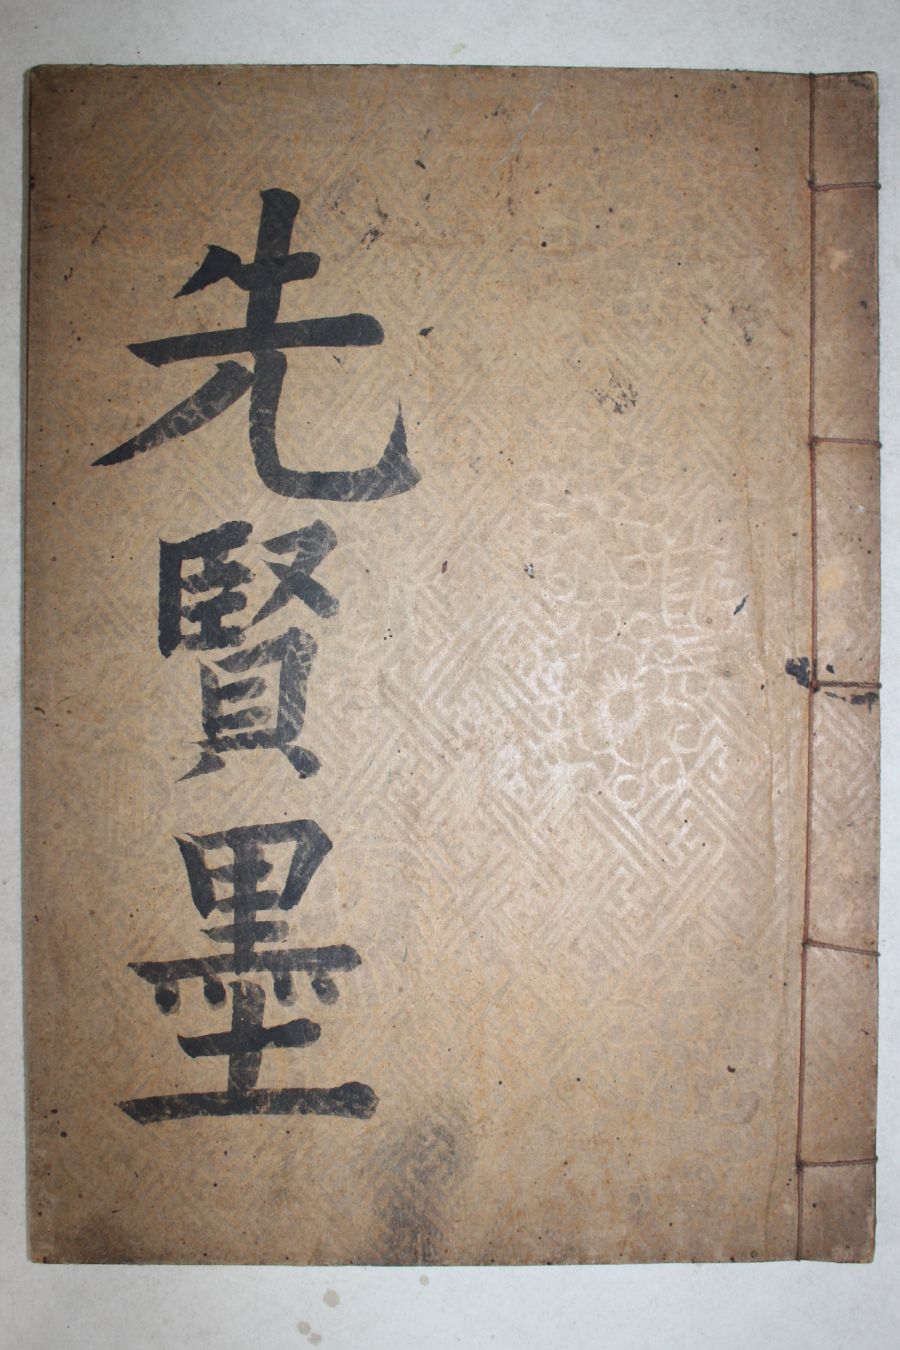 先賢墨